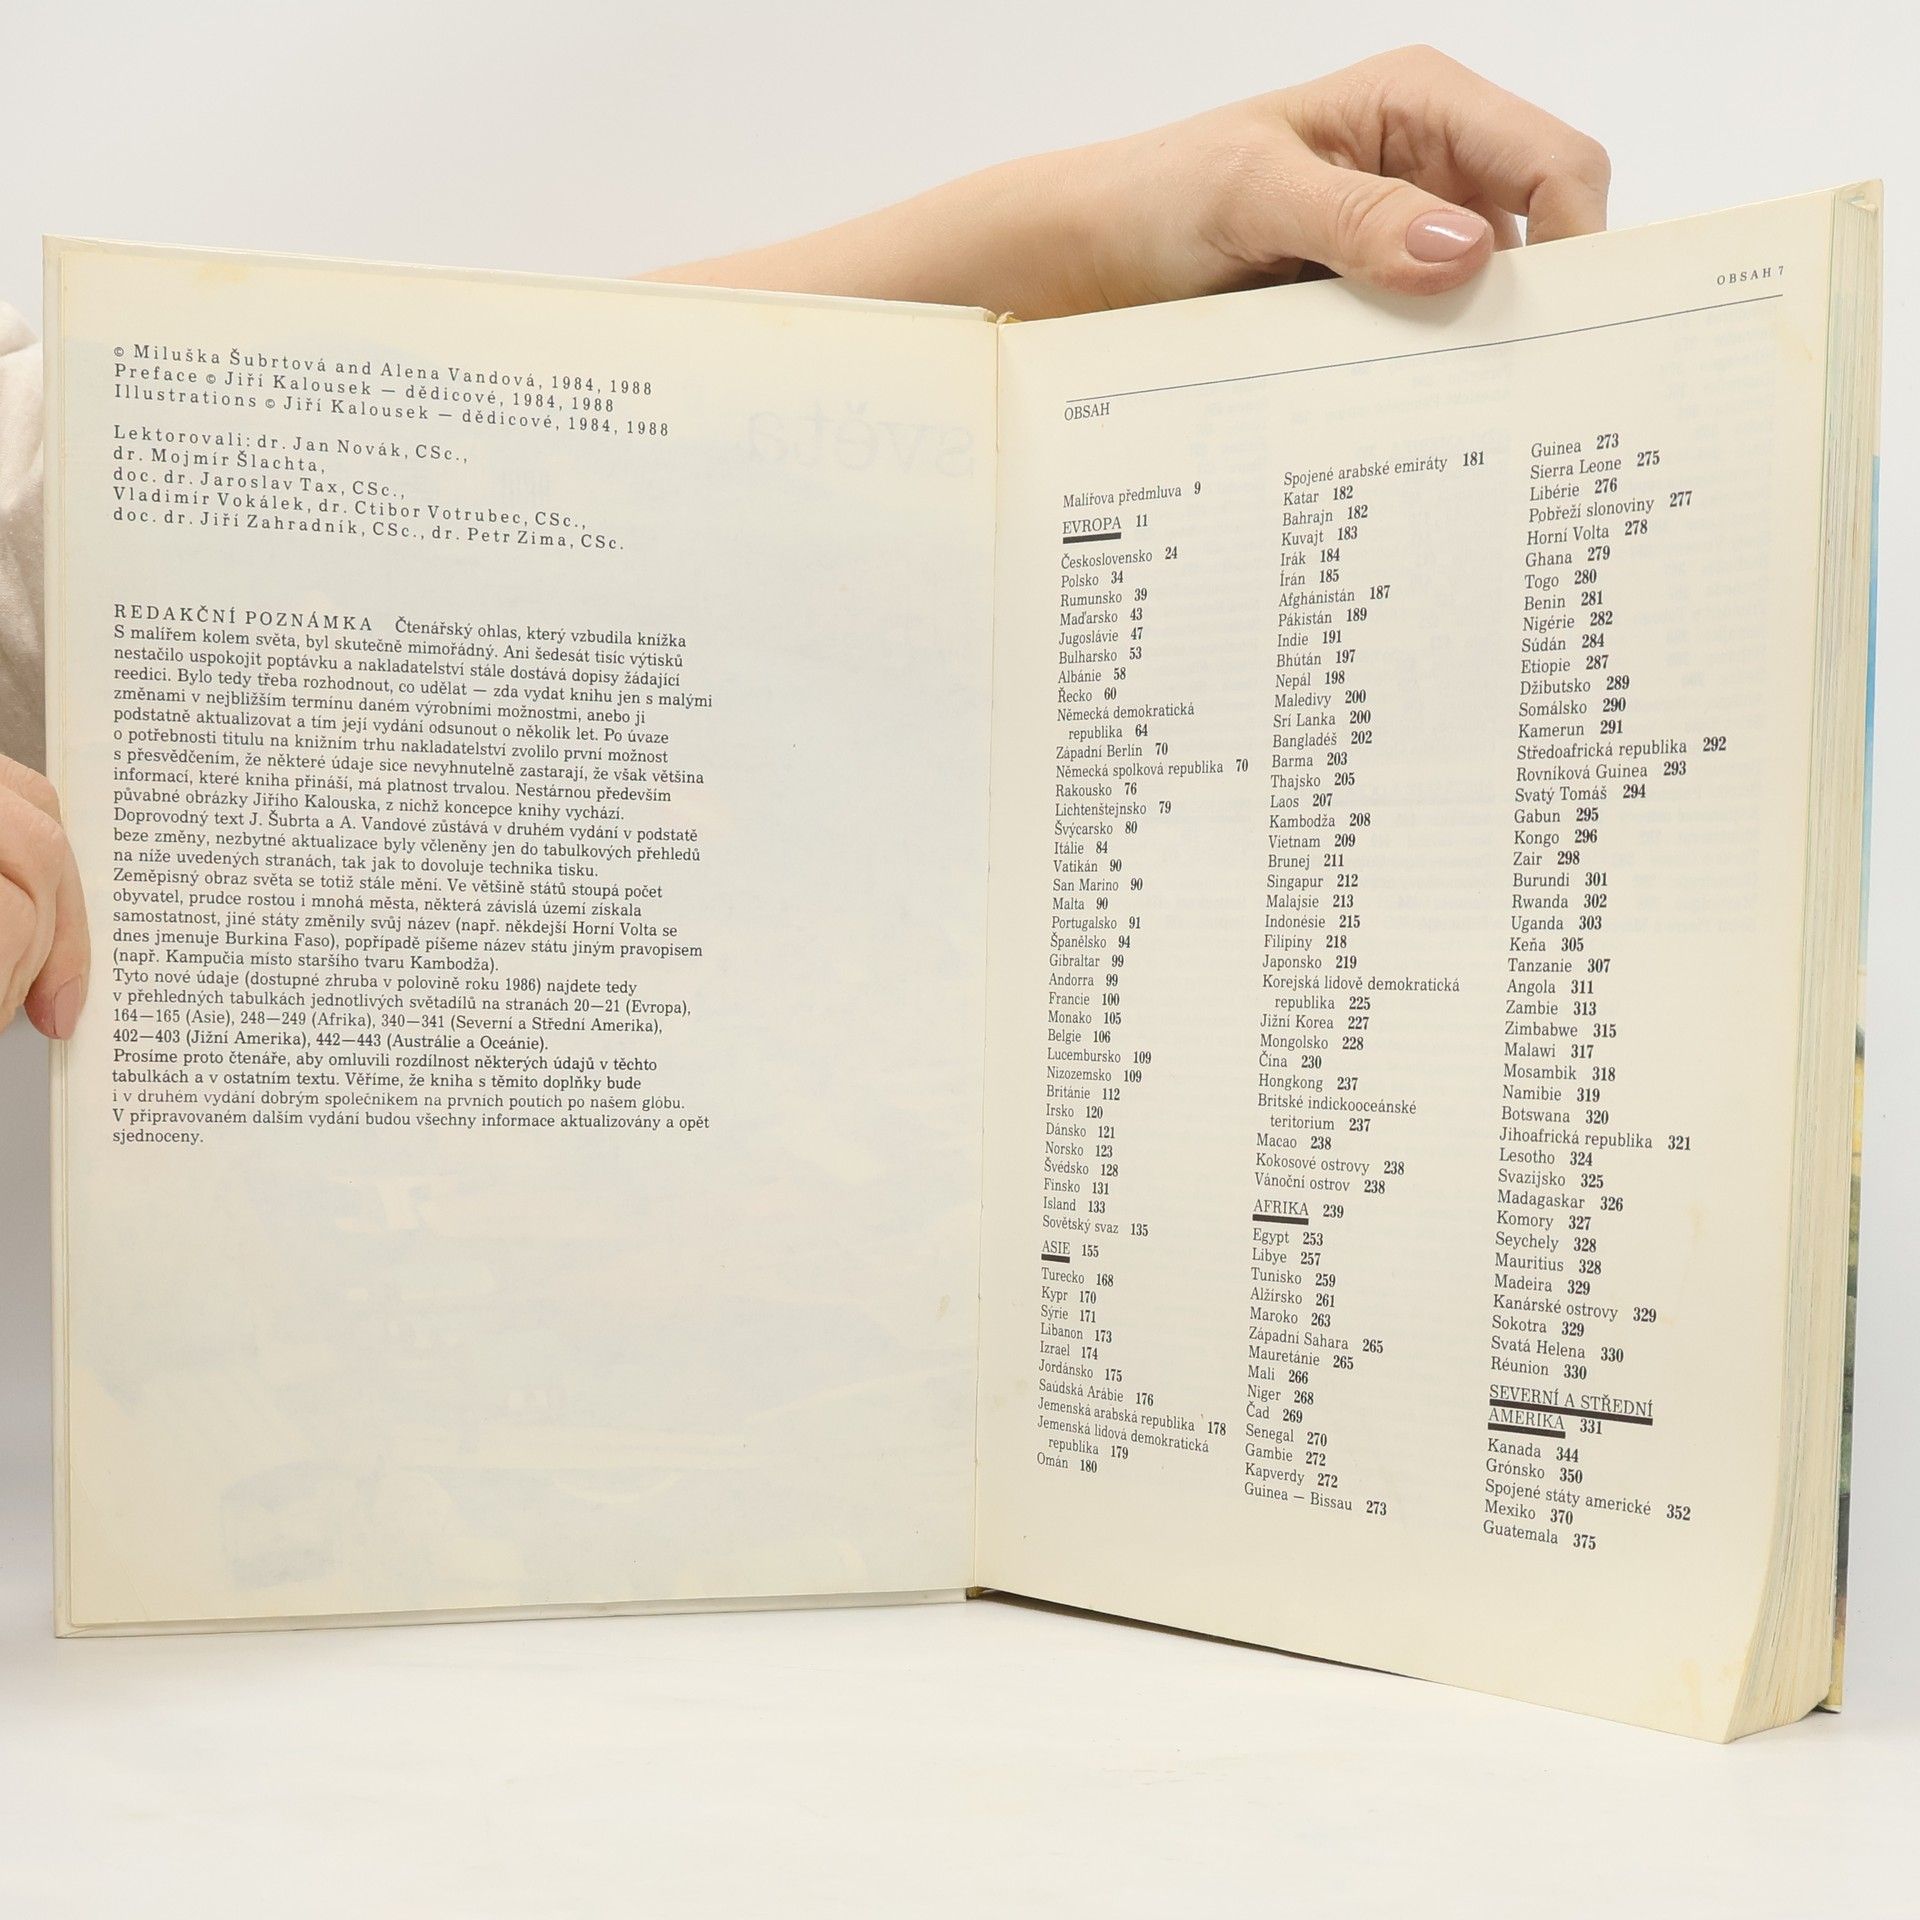 © Miluška Šubrtová and Alena Vandová, 1984, 1988
Preface © Jiří Kalousek — dědicové, 1984, 1988
Illustrations © Jiří Kalousek — dědicové, 1984, 1988
Lektorovali: dr. Jan Novák, CSc.,
dr. Mojmír Šlachta,
doc. dr. Jaroslav Tax, CSc.,
Vladimír Vokálek, dr. Ctibor Votrubec, CSc.,
doc. dr. Jiří Zahradník, CSc., dr. Petr Zima, CSc.
REDAKČNÍ POZNÁMKA Čtenářský ohlas, který vzbudila knížka
S malířem kolem světa, byl skutečně mimořádný. Ani šedesát tisíc výtisků
nestačilo uspokojit poptávku a nakladatelství stále dostává dopisy žádající
reedici. Bylo tedy třeba rozhodnout, co udělat — zda vydat knihu jen s malými
změnami v nejbližším termínu daném výrobními možnostmi, anebo ji
podstatně aktualizovat a tím její vydání odsunout o několik let. Po úvaze
o potřebnosti titulu na knižním trhu nakladatelství zvolilo první možnost
s přesvědčením, že některé údaje sice nevyhnutelně zastarají, že však většina
informací, které kniha přináší, má platnost trvalou. Nestárnou především
půvabné obrázky Jiřího Kalouska, z nichž koncepce knihy vychází.
Doprovodný text J. Šubrta a A. Vandové zůstává v druhém vydání v podstatě
beze změny, nezbytné aktualizace byly včleněny jen do tabulkových přehledů
na níže uvedených stranách, tak jak to dovoluje technika tisku.
Zeměpisný obraz světa se totiž stále mění. Ve většině států stoupá počet
obyvatel, prudce rostou i mnohá města, některá závislá území získala
samostatnost, jiné státy změnily svůj název (např. někdejší Horní Volta se
dnes jmenuje Burkina Faso), popřípadě píšeme název státu jiným pravopisem
(např. Kampučia místo staršího tvaru Kambodža).
Tyto nové údaje (dostupné zhruba v polovině roku 1986) najdete tedy
v přehledných tabulkách jednotlivých světadílů na stranách 20—21 (Evropa),
164—165 (Asie), 248—249 (Afrika), 340—341 (Severní a Střední Amerika),
402—403 (Jižní Amerika), 442—443 (Austrálie a Oceánie).
Prosíme proto čtenáře, aby omluvili rozdílnost některých údajů v těchto
tabulkách a v ostatním textu. Věříme, že kniha s těmito doplňky bude
i v druhém vydání dobrým společníkem na prvních poutích po našem glóbu.
V připravovaném dalším vydání budou všechny informace aktualizovány a opět
sjednoceny.
OBSAH 7
OBSAH
Malířova předmluva 9
EVROPA 11
Československo 24
Polsko 34
Rumunsko 39
Maďarsko 43
Jugoslávie 47
Bulharsko 53
Albánie 58
Řecko 60
Německá demokratická
republika 64
Západní Berlín 70
Německá spolková republika 70
Rakousko 76
Lichtenštejnsko 79
Švýcarsko 80
Itálie 84
Vatikán 90
San Marino 90
Malta 90
Portugalsko 91
Španělsko 94
Gibraltar 99
Andorra 99
Francie 100
Monako 105
Belgie 106
Lucembursko 109
Nizozemsko 109
Británie 112
Irsko 120
Dánsko 121
Norsko 123
Švédsko 128
Finsko 131
Island 133
Sovětský svaz 135
ASIE 155
Turecko 168
Kypr 170
Sýrie 171
Libanon 173
Izrael 174
Jordánsko 175
Saúdská Arábie 176
Jemenská arabská republika 178
Jemenská lidová demokratická
republika 179
Omán 180
Spojené arabské emiráty 181
Katar 182
Bahrajn 182
Kuvajt 183
Irák 184
Írán 185
Afghánistán 187
Pákistán 189
Indie 191
Bhútán 197
Nepál 198
Maledivy 200
Srí Lanka 200
Bangladéš 202
Barma 203
Thajsko 205
Laos 207
Kambodža 208
Vietnam 209
Brunej 211
Singapur 212
Malajsie 213
Indonésie 215
Filipíny 218
Japonsko 219
Korejská lidově demokratická
republika 225
Jižní Korea 227
Mongolsko 228
Čína 230
Hongkong 237
Britské indickooceánské
teritorium 237
Macao 238
Kokosové ostrovy 238
Vánoční ostrov 238
AFRIKA 239
Egypt 253
Libye 257
Tunisko 259
Alžírsko 261
Maroko 263
Západní Sahara 265
Mauretánie 265
Mali 266
Niger 268
Čad 269
Senegal 270
Gambie 272
Kapverdy 272
Guinea — Bissau 273
Guinea 273
Sierra Leone 275
Libérie 276
Pobřeží slonoviny 277
Horní Volta 278
Ghana 279
Togo 280
Benin 281
Nigérie 282
Súdán 284
Etiopie 287
Džibutsko 289
Somálsko 290
Kamerun 291
Středoafrická republika 292
Rovníková Guinea 293
Svatý Tomáš 294
Gabun 295
Kongo 296
Zair 298
Burundi 301
Rwanda 302
Uganda 303
Keňa 305
Tanzanie 307
Angola 311
Zambie 313
Zimbabwe 315
Malawi 317
Mosambik 318
Namibie 319
Botswana 320
Jihoafrická republika 321
Lesotho 324
Svazijsko 325
Madagaskar 326
Komory 327
Seychely 328
Mauritius 328
Madeira 329
Kanárské ostrovy 329
Sokotra 329
Svatá Helena 330
Réunion 330
SEVERNÍ A STŘEDNÍ
AMERIKA 331
Kanada 344
Grónsko 350
Spojené státy americké 352
Mexiko 370
Guatemala 375